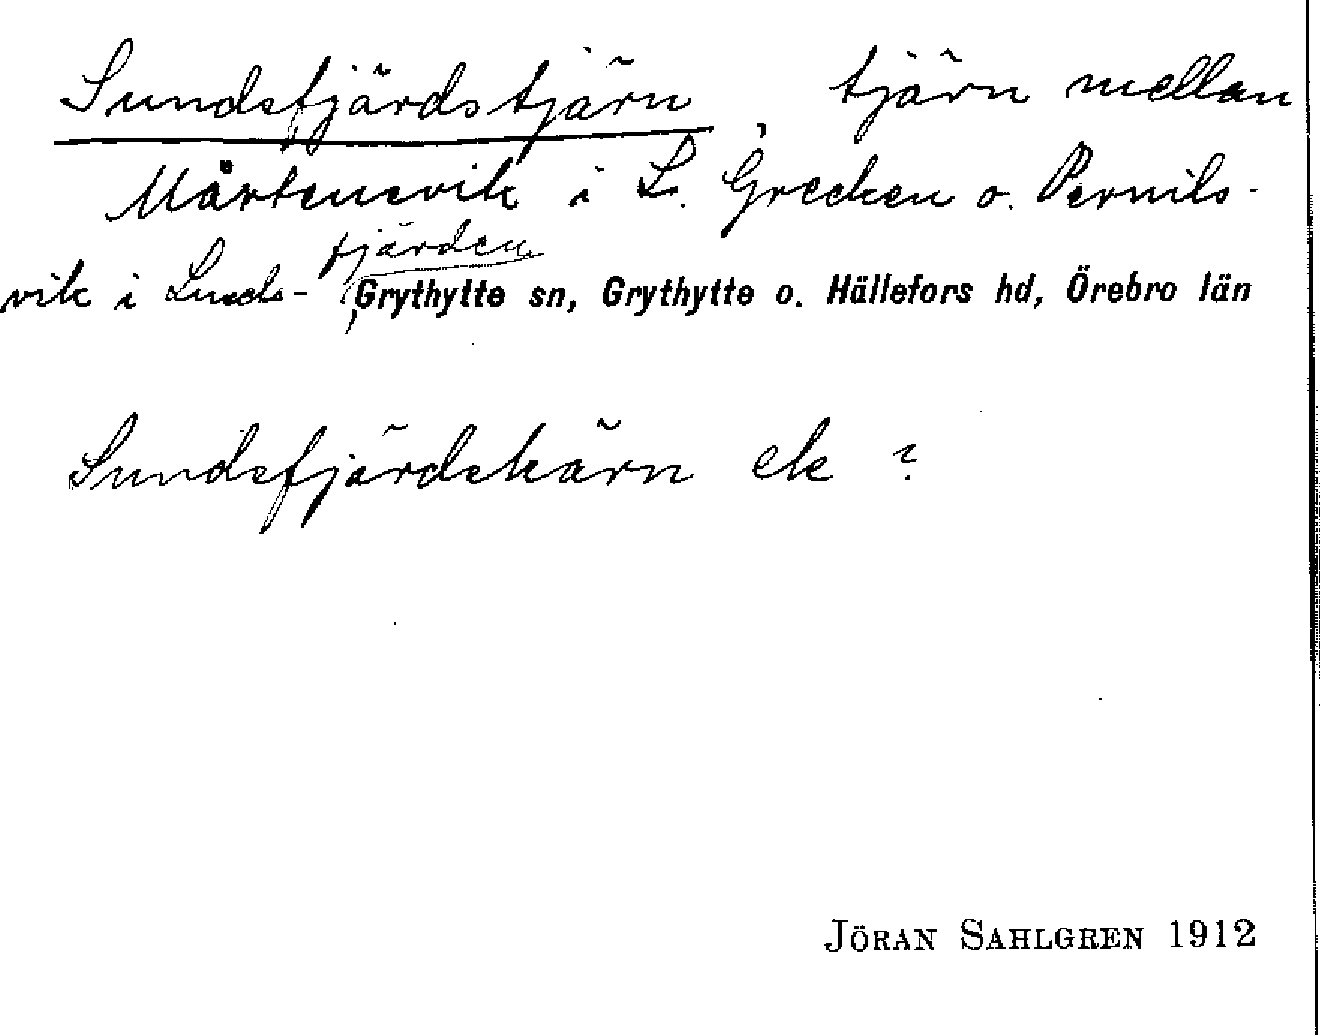 Sundsfjärdstjärn, tjärn mellan
Mårtensvik i L. Grecken o. Pernils-
vik i Sunds-fjärden
Grythytte sn, Grythytte o. Hällefors hd, Örebro län
Sundsfjärdskärn ek ?
JÖRAN SAHLGREN 1912